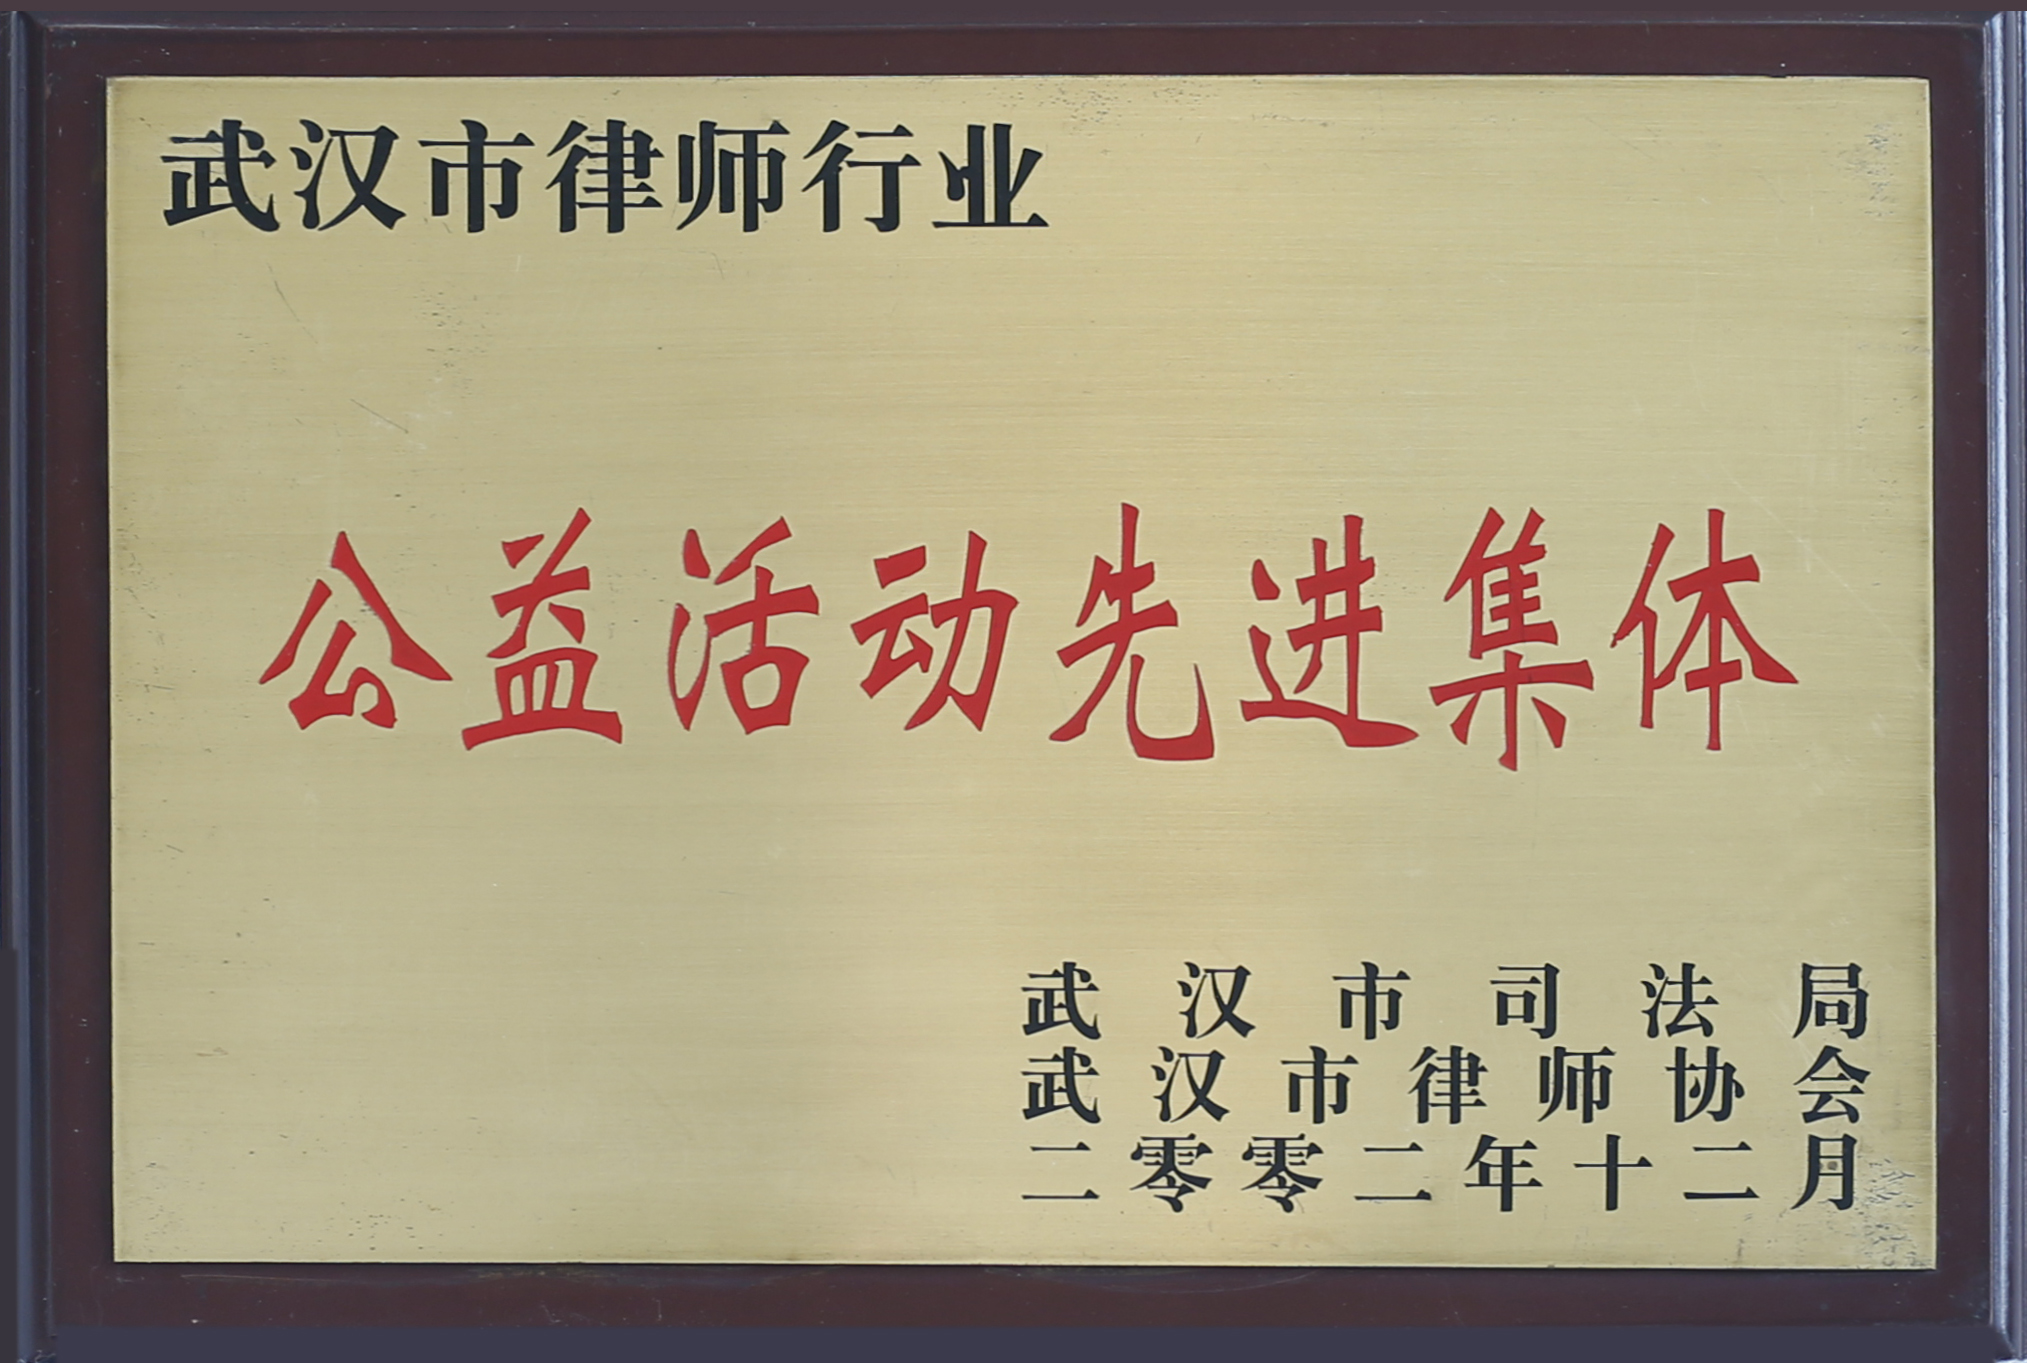 武汉市律师行业
公益活动先进集体
武汉市司法局
武汉市律师协会
二零零二年十二月